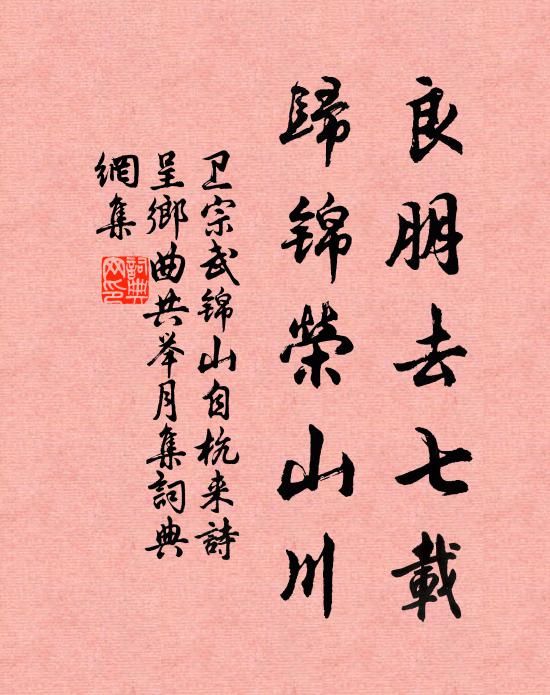 良朋去七載
歸锦榮山川
卫宗武锦山自杭来詩
呈鄉曲共举月集詞典
網集
詞典網印